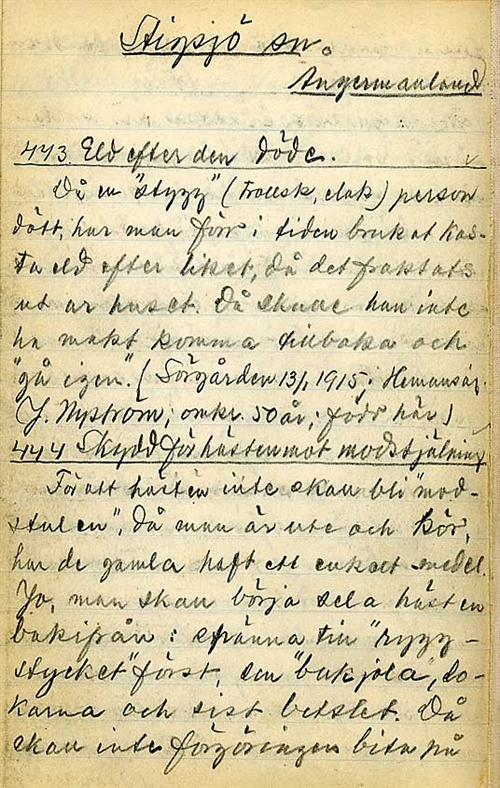 Stigsjö sn.
Ångermanland
443. Eld efter den döde.
Då en "stygg" (trollsk, elak) person
dött, har man förr i tiden brukat kas-
ta eld efter liket, då det fraktats
ut ur huset. Då skulle han inte
ha makt komma tillbaka och
"gå igen". (Sörgården 13/1 1915; Hemmansäg.
J. Nyström; omkr. 50 år; född här)
444 Skydd för hästen mot modstjälning
För att hästen inte skall bli "mod-
stulen", då man är ute och kör,
har de gamla haft ett enkelt medel.
Jo, man skall börja sela hästen
bakifrån: spänna till "rygg-
stycket" först, sen "bukjola", lo-
karna och sist betslet. Då
skall inte förgöringen bita på